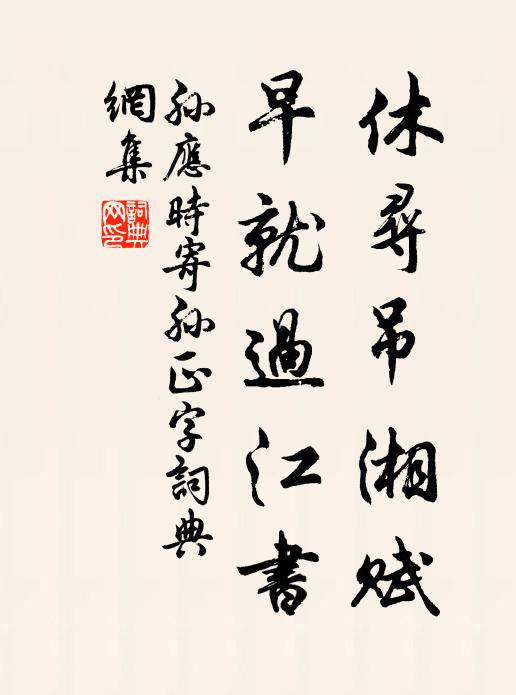 休尋吊湘賦
早就過江書
孫應時寄孫正字詞典
網集
詞典
网印